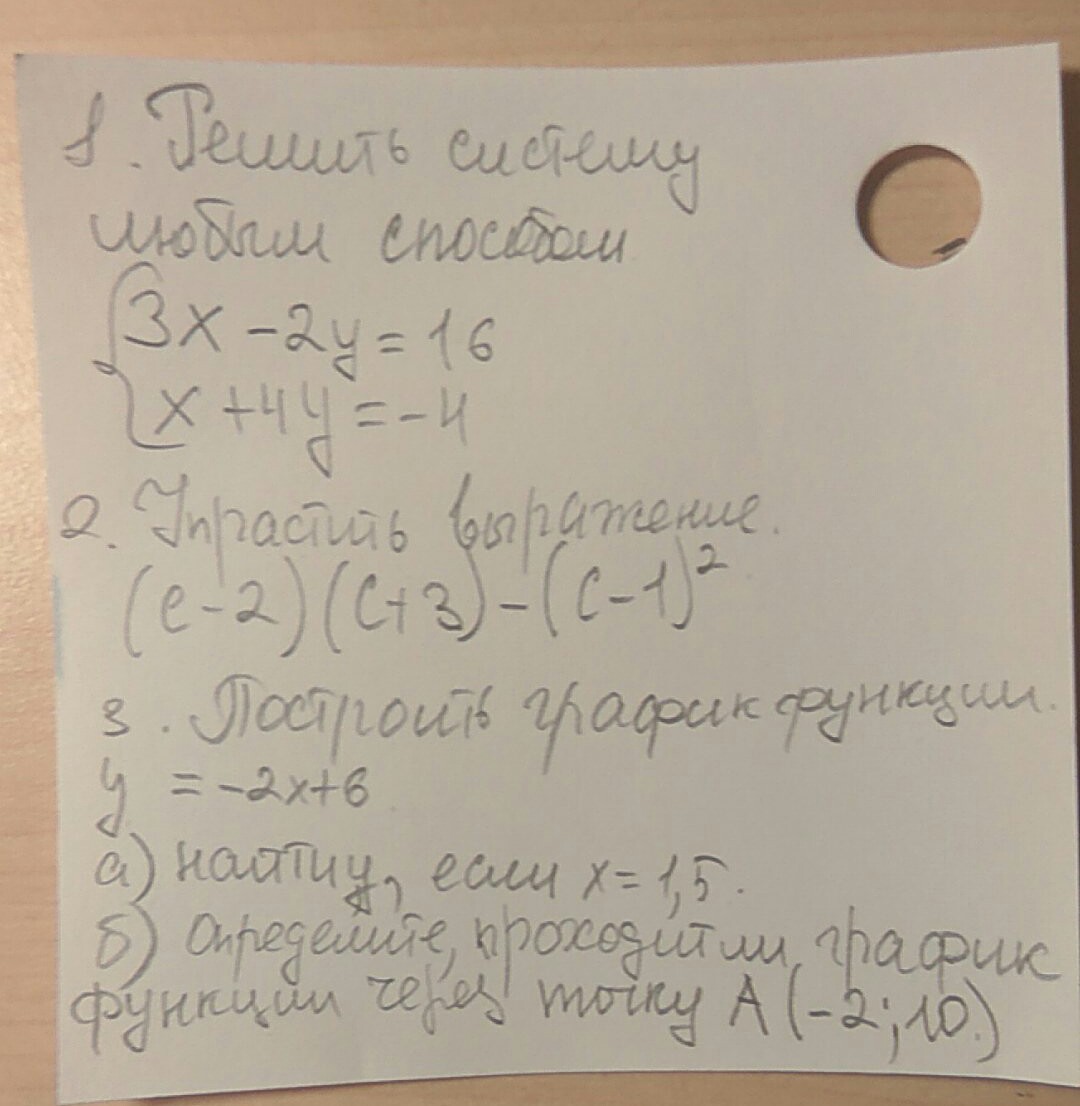 1. Решить систему
любым способом
3x - 2y = 16
x + 4y = -4
2. Упрастить выражение.
(c - 2)(c + 3) - (c - 1)²
3. Построить график функции.
y = -2x+6
а) найти y, если x = 1,5.
б) определите, проходит ли график
функции через точку А (-2; 10.)